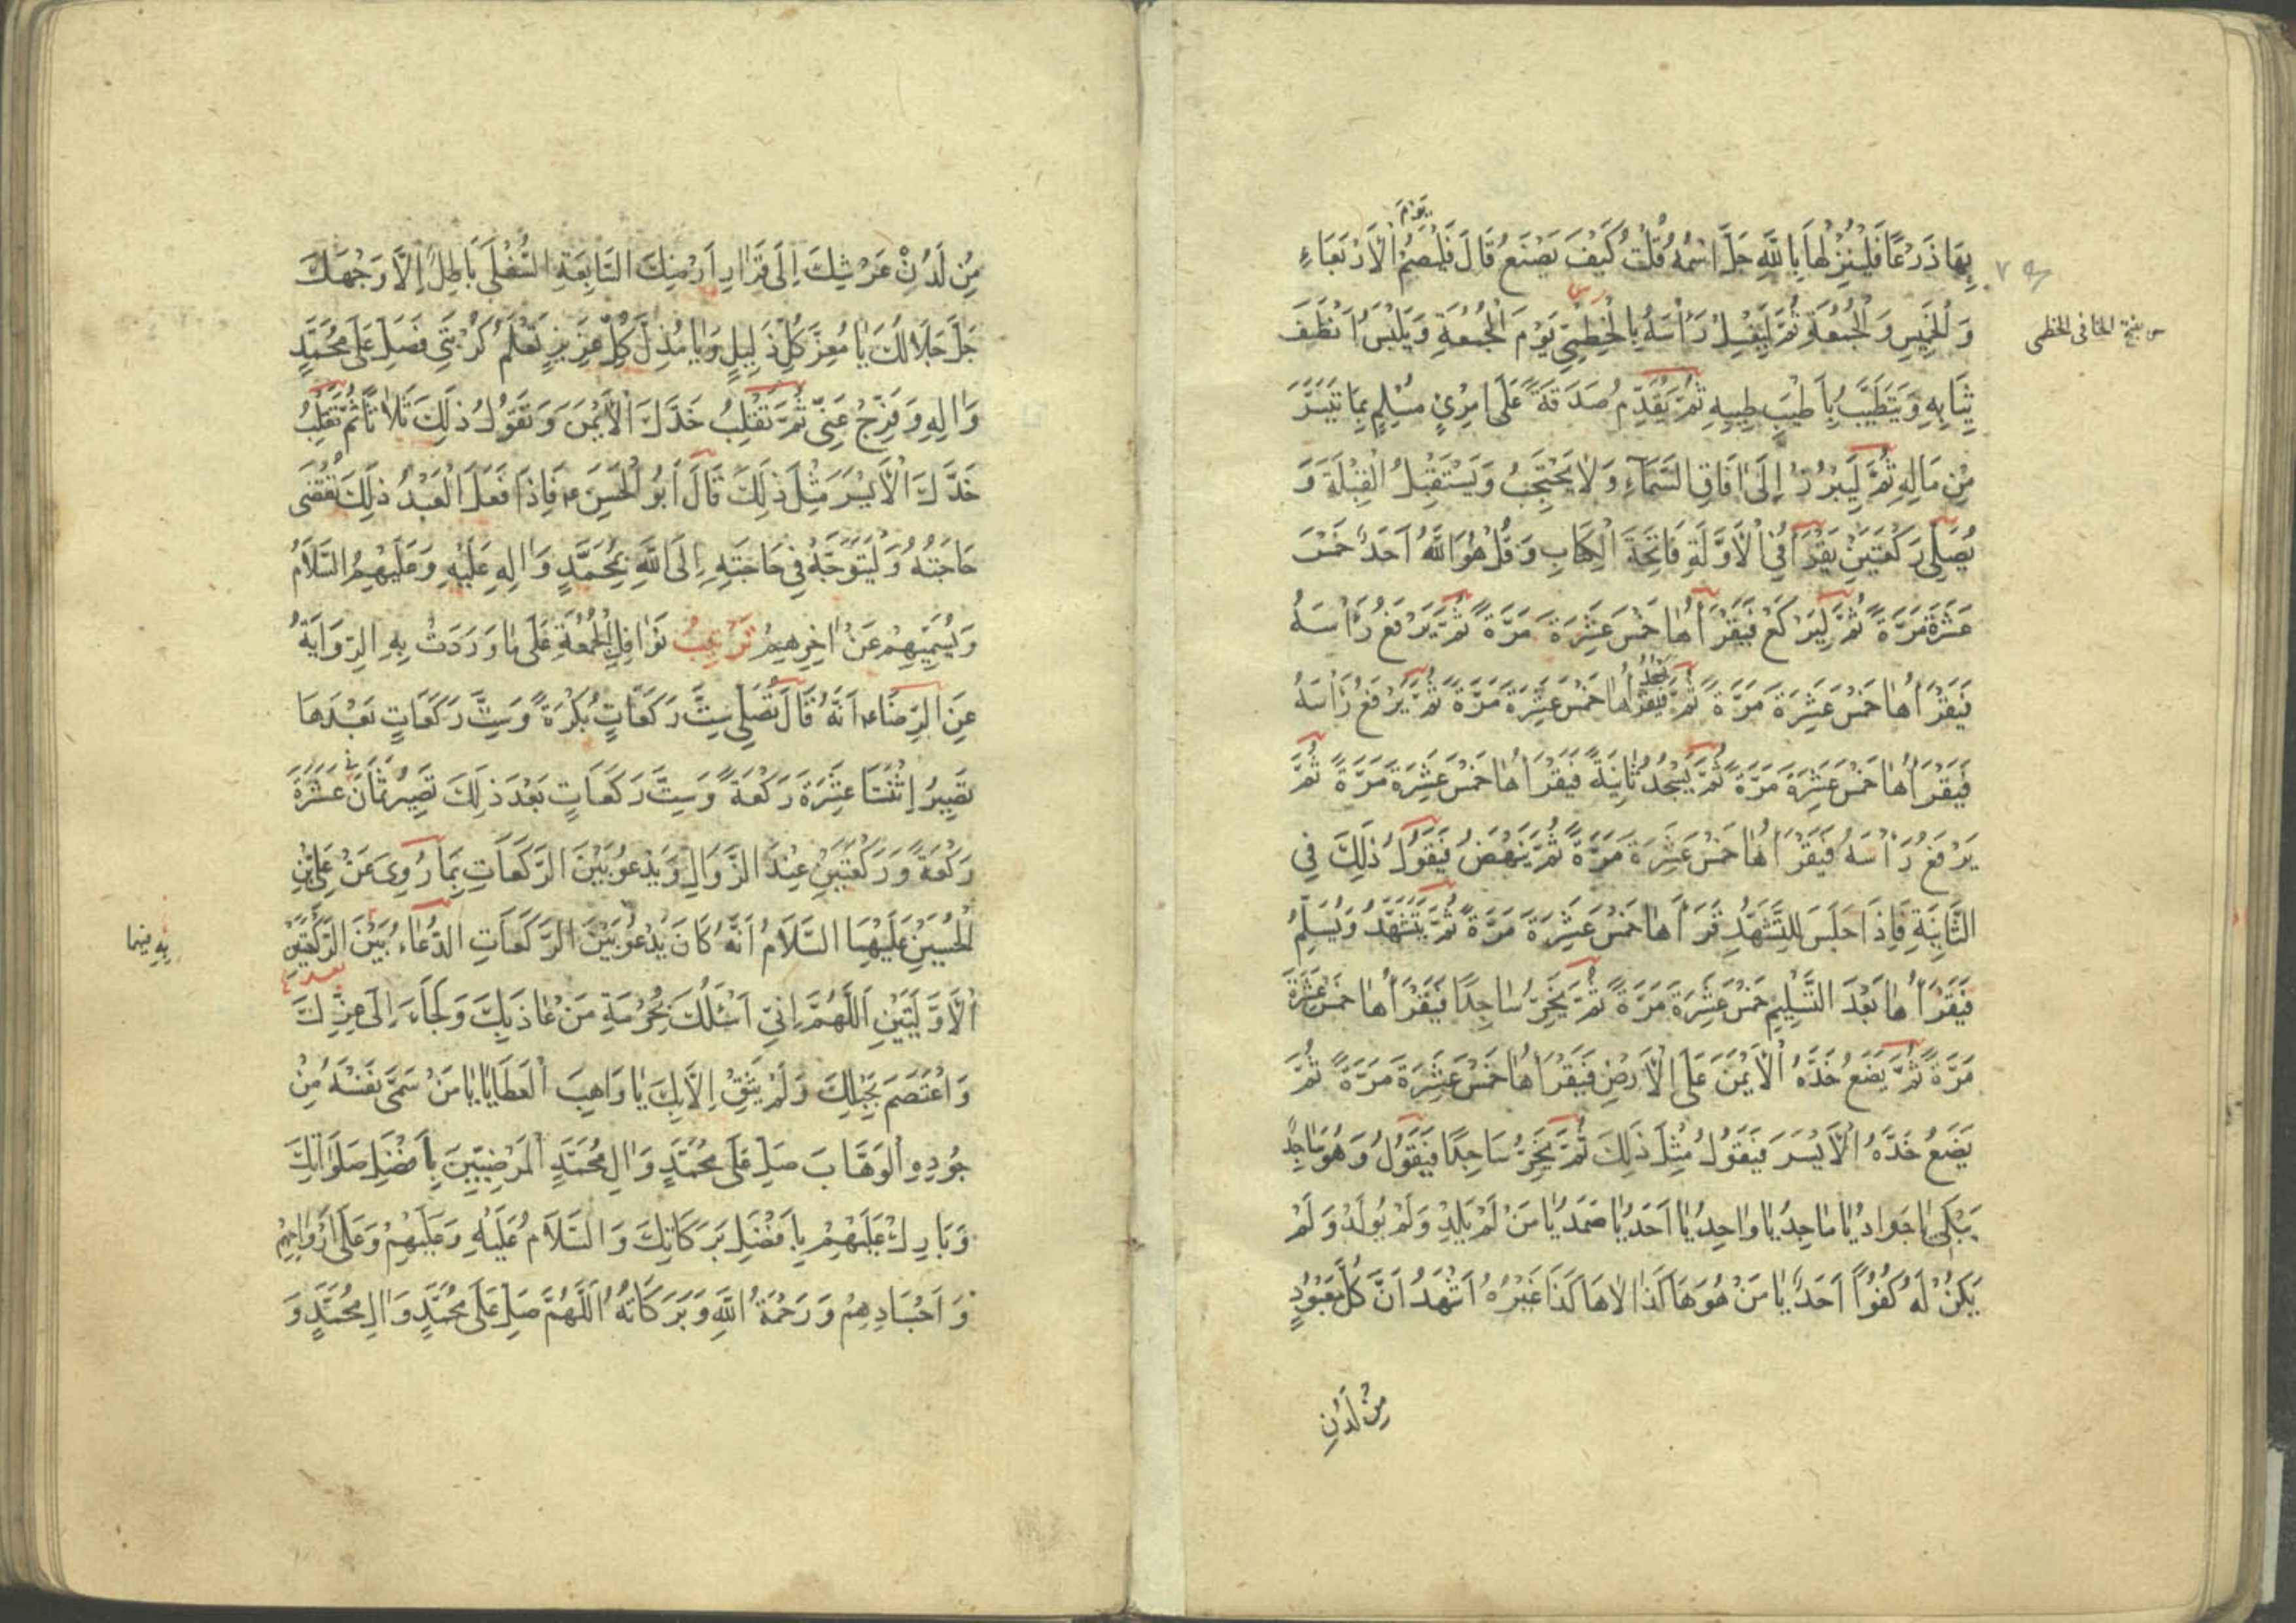 يوم
بِهَا ذَرْعًا فَلْيُنْزِلْهَا بِاللَّهِ جَلَّ اسْمُهُ قُلْتُ كَيْفَ يَصْنَعُ قَالَ فَلْيَصُمْ الْأَرْبَعَاءِ
وَالْخَمِيسِ وَالْجُمُعَةِ ثُمَّ لِيَغْسِلْ رَأْسَهُ بِالْخِطْمِيِّ يَوْمَ الْجُمُعَةِ وَيَلْبَسُ أَنْظَفَ
ثِيَابِهِ وَيَتَطَيَّبُ بِأَطْيَبِ طِيبِهِ ثُمَّ يُقَدِّمُ صَدَقَةً عَلَى امْرِئٍ مُسْلِمٍ بِمَا تَيَسَّرَ
مِنْ مَالِهِ ثُمَّ لِيَبْرُزْ إِلَى آفَاقِ السَّمَاءِ وَلَا يَحْتَجِبُ وَيَسْتَقْبِلُ الْقِبْلَةَ وَ
يُصَلِّي رَكْعَتَيْنِ يَقْرَأُ فِي الْأَوَّلَةِ فَاتِحَةَ الْكِتَابِ وَقُلْ هُوَ اللَّهُ أَحَدٌ خَمْسَ
عَشْرَةَ مَرَّةً ثُمَّ لِيَرْكَعْ فَيَقْرَأُهَا خَمْسَ عَشِرَةَ مَرَّةً ثُمَّ يَرْفَعُ رَأْسَهُ
فَيَقْرَأُهَا خَمْسَ عَشِرَةَ مَرَّةً ثُمَّ يسجد فَيَقْرَأُهَا خَمْسَ عَشِرَةَ مَرَّةً ثُمَّ يَرْفَعُ رَأْسَهُ
فَيَقْرَأُهَا خَمْسَ عَشِرَةَ مَرَّةً ثُمَّ يَسْجُدُ ثَانِيَةً فَيَقْرَأُهَا خَمْسَ عَشِرَةَ مَرَّةً ثُمَّ
يَرْفَعُ رَأْسَهُ فَيَقْرَأُهَا خَمْسَ عَشِرَةَ مَرَّةً ثُمَّ يَنْهَضُ فَيَقُولُ ذَلِكَ فِي
الثَّانِيَةِ فَإِذَا جَلَسَ لِلتَّشَهُّدِ قَرَأَهَا خَمْسَ عَشِرَةَ مَرَّةً ثُمَّ يَتَشَهَّدُ وَيُسَلِّمُ
فَيَقْرَأُهَا بَعْدَ التَّسْلِيمِ خَمْسَ عَشِرَةَ مَرَّةً ثُمَّ يَخِرُّ سَاجِدًا فَيَقْرَأُهَا خَمْسَ عَشِرَةَ
مَرَّةً ثُمَّ يَضَعُ خَدَّهُ الْأَيْمَنَ عَلَى الْأَرْضِ فَيَقْرَأُهَا خَمْسَ عَشِرَةَ مَرَّةً ثُمَّ
يَضَعُ خَدَّهُ الْأَيْسَرَ فَيَقُولُ مِثْلَ ذَلِكَ ثُمَّ يَخِرُّ سَاجِدًا فَيَقُولُ وَهُوَ سَاجِدٌ
يَبْكِي يَا جَوَادُ يَا مَاجِدُ يَا وَاحِدُ يَا أَحَدُ يَا صَمَدُ يَا مَنْ لَمْ يَلِدْ وَلَمْ يُولَدْ وَلَمْ
يَكُنْ لَهُ كُفُوًا أَحَدٌ يَا مَنْ هُوَ هَكَذَا لَا هَكَذَا غَيْرُهُ أَشْهَدُ أَنَّ كُلَّ مَعْبُودٍ
مِنْ لَدُنْ
مِنْ لَدُنْ عَرْشِكَ إِلَى قَرَارِ أَرْضِكَ السَّابِعَةِ السُّفْلَى بَاطِلٌ إِلَّا وَجْهَكَ
جَلَّ جَلَالُكَ يَا مُعِزَّ كُلِّ ذَلِيلٍ وَيَا مُذِلَّ كُلِّ عَزِيزٍ تَعْلَمُ كُرْبَتِي فَصَلِّ عَلَى مُحَمَّدٍ
وَآلِهِ وَفَرِّجْ عَنِّي ثُمَّ تَقْلِبُ خَدَّكَ الْأَيْمَنَ وَتَقُولُ ذَلِكَ ثَلَاثًا ثُمَّ تَقْلِبُ
خَدَّكَ الْأَيْسَرَ مِثْلَ ذَلِكَ قَالَ أَبُو الْحَسَنِ ع فَإِذَا فَعَلَ الْعَبْدُ ذَلِكَ تُقْضَى
حَاجَتُهُ وَلْيَتَوَجَّهْ فِي حَاجَتِهِ إِلَى اللَّهِ بِمُحَمَّدٍ وَآلِهِ عَلَيْهِ وَعَلَيْهِمُ السَّلَامُ
وَيُسَمِّيهِمْ عَنْ آخِرِهِمْ تَرْتِيبُ نَوَافِلِ الْجُمُعَةِ عَلَى مَا وَرَدَتْ بِهِ الرِّوَايَةُ
عَنِ الرِّضَا ع أَنَّهُ قَالَ تُصَلِّي سِتَّ رَكَعَاتٍ بُكْرَةً وَسِتَّ رَكَعَاتٍ بَعْدَهَا
تَصِيرُ إِثْنَتَا عَشِرَةَ رَكْعَةً وَسِتَّ رَكَعَاتٍ بَعْدَ ذَلِكَ تَصِيرُ ثَمَانَ عَشْرَةَ
رَكْعَةً وَرَكْعَتَيْنِ عِنْدَ الزَّوَالِ وَيَدْعُو بَيْنَ الرَّكَعَاتِ بِمَا رُوِيَ عَنْ عَلِيِّ بْنِ
الْحُسَيْنِ عَلَيْهِمَا السَّلَامُ أَنَّهُ كَانَ يَدْعُو بَيْنَ الرَّكَعَاتِ الدُّعَاءُ بَيْنَ الرَّكْعَتَيْنِ
الْأَوَّلَتَيْنِ اَللَّهُمَّ إِنِّي أَسْئَلُكَ بِحُرْمَةِ مَنْ عَاذَ بِكَ وَلَجَأَ إِلَى عِزِّكَ
وَاعْتَصَمَ بِحَبْلِكَ وَلَمْ يَثِقْ إِلَّا بِكَ يَا وَاهِبَ الْعَطَايَا يَا مَنْ سَمَّى نَفْسَهُ مِنْ
جُودِهِ الْوَهَّابَ صَلِّ عَلَى مُحَمَّدٍ وَآلِ مُحَمَّدٍ الْمَرْضِيِّينَ بِأَفْضَلِ صَلَوَاتِكَ
وَبَارِكْ عَلَيْهِمْ بِأَفْضَلِ بَرَكَاتِكَ وَالسَّلَامُ عَلَيْهِ وَعَلَيْهِمْ وَعَلَى أَرْوَاحِهِمْ
وَأَجْسَادِهِمْ وَرَحْمَةُ اللَّهِ وَبَرَكَاتُهُ اَللَّهُمَّ صَلِّ عَلَى مُحَمَّدٍ وَآلِ مُحَمَّدٍ وَ